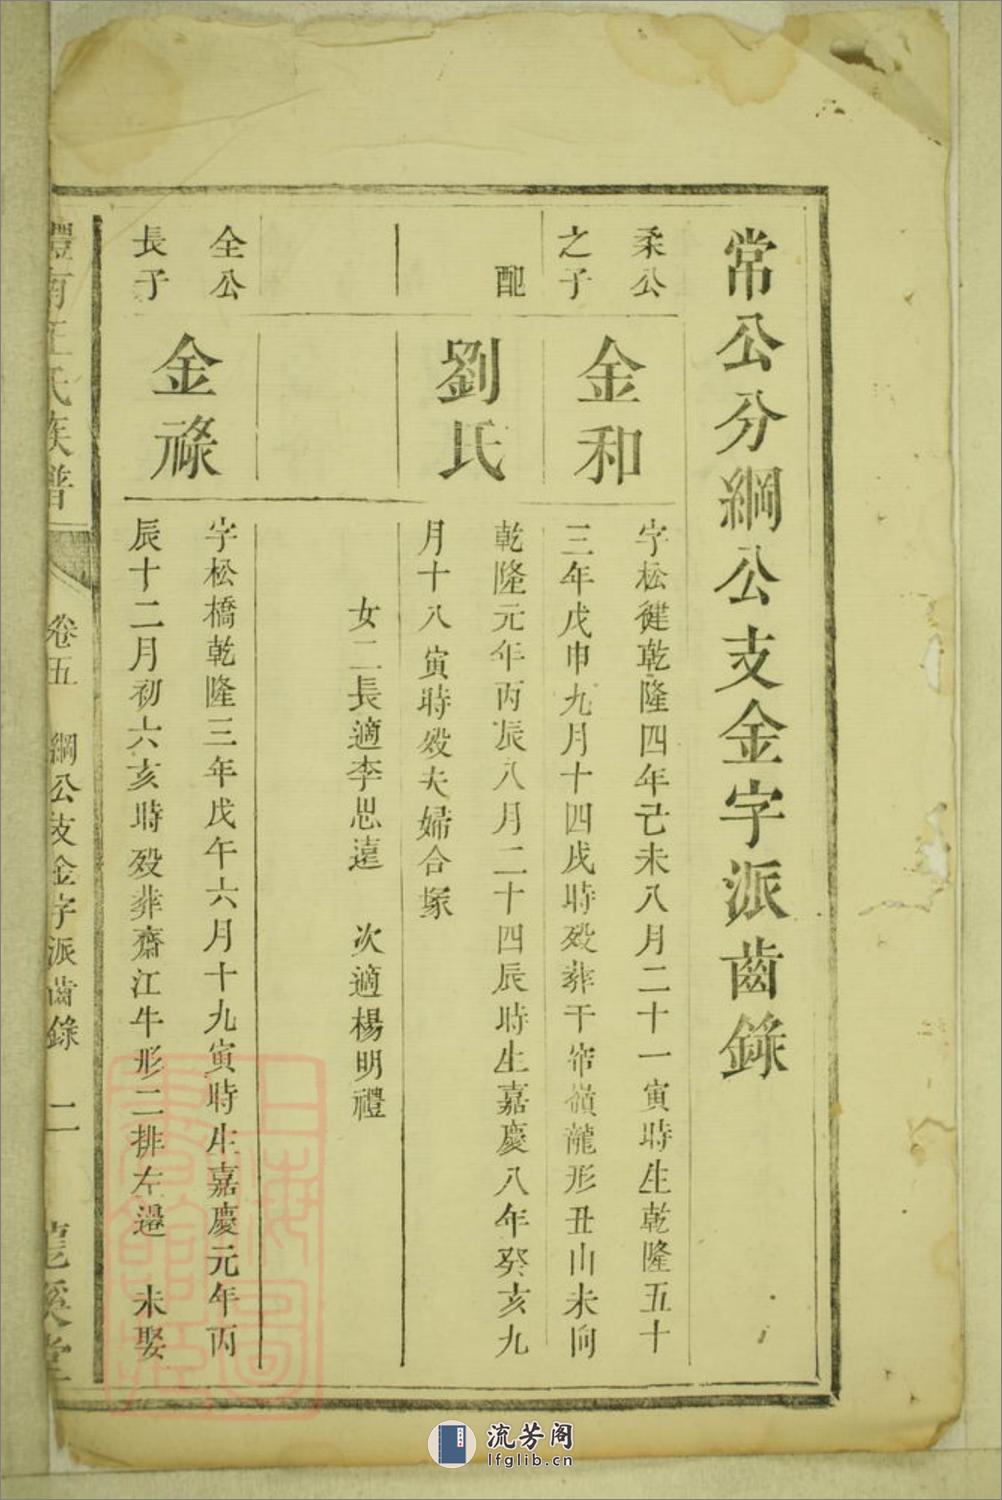 常公分綱公支金字派齒錄
柔公
之子
金和
字松健乾隆四年己未八月二十一寅時生乾隆五十
三年戊申九月十四戌時歿葬干帘嶺龍形丑山未向
配
劉氏
乾隆元年丙辰八月二十四辰時生嘉慶八年癸亥九
月十八寅時歿夫婦合塚
女二長適李思遠 次適楊明禮
全公
長子
金祿
字松橋乾隆三年戊午六月十九寅時生嘉慶元年丙
辰十二月初六亥時歿葬齋江牛形二排左邊 未娶
澧南王氏族譜 卷五 綱公支金字派齒錄 二 龍溪堂
上海圖書館藏
流芳阁
lfglib.cn